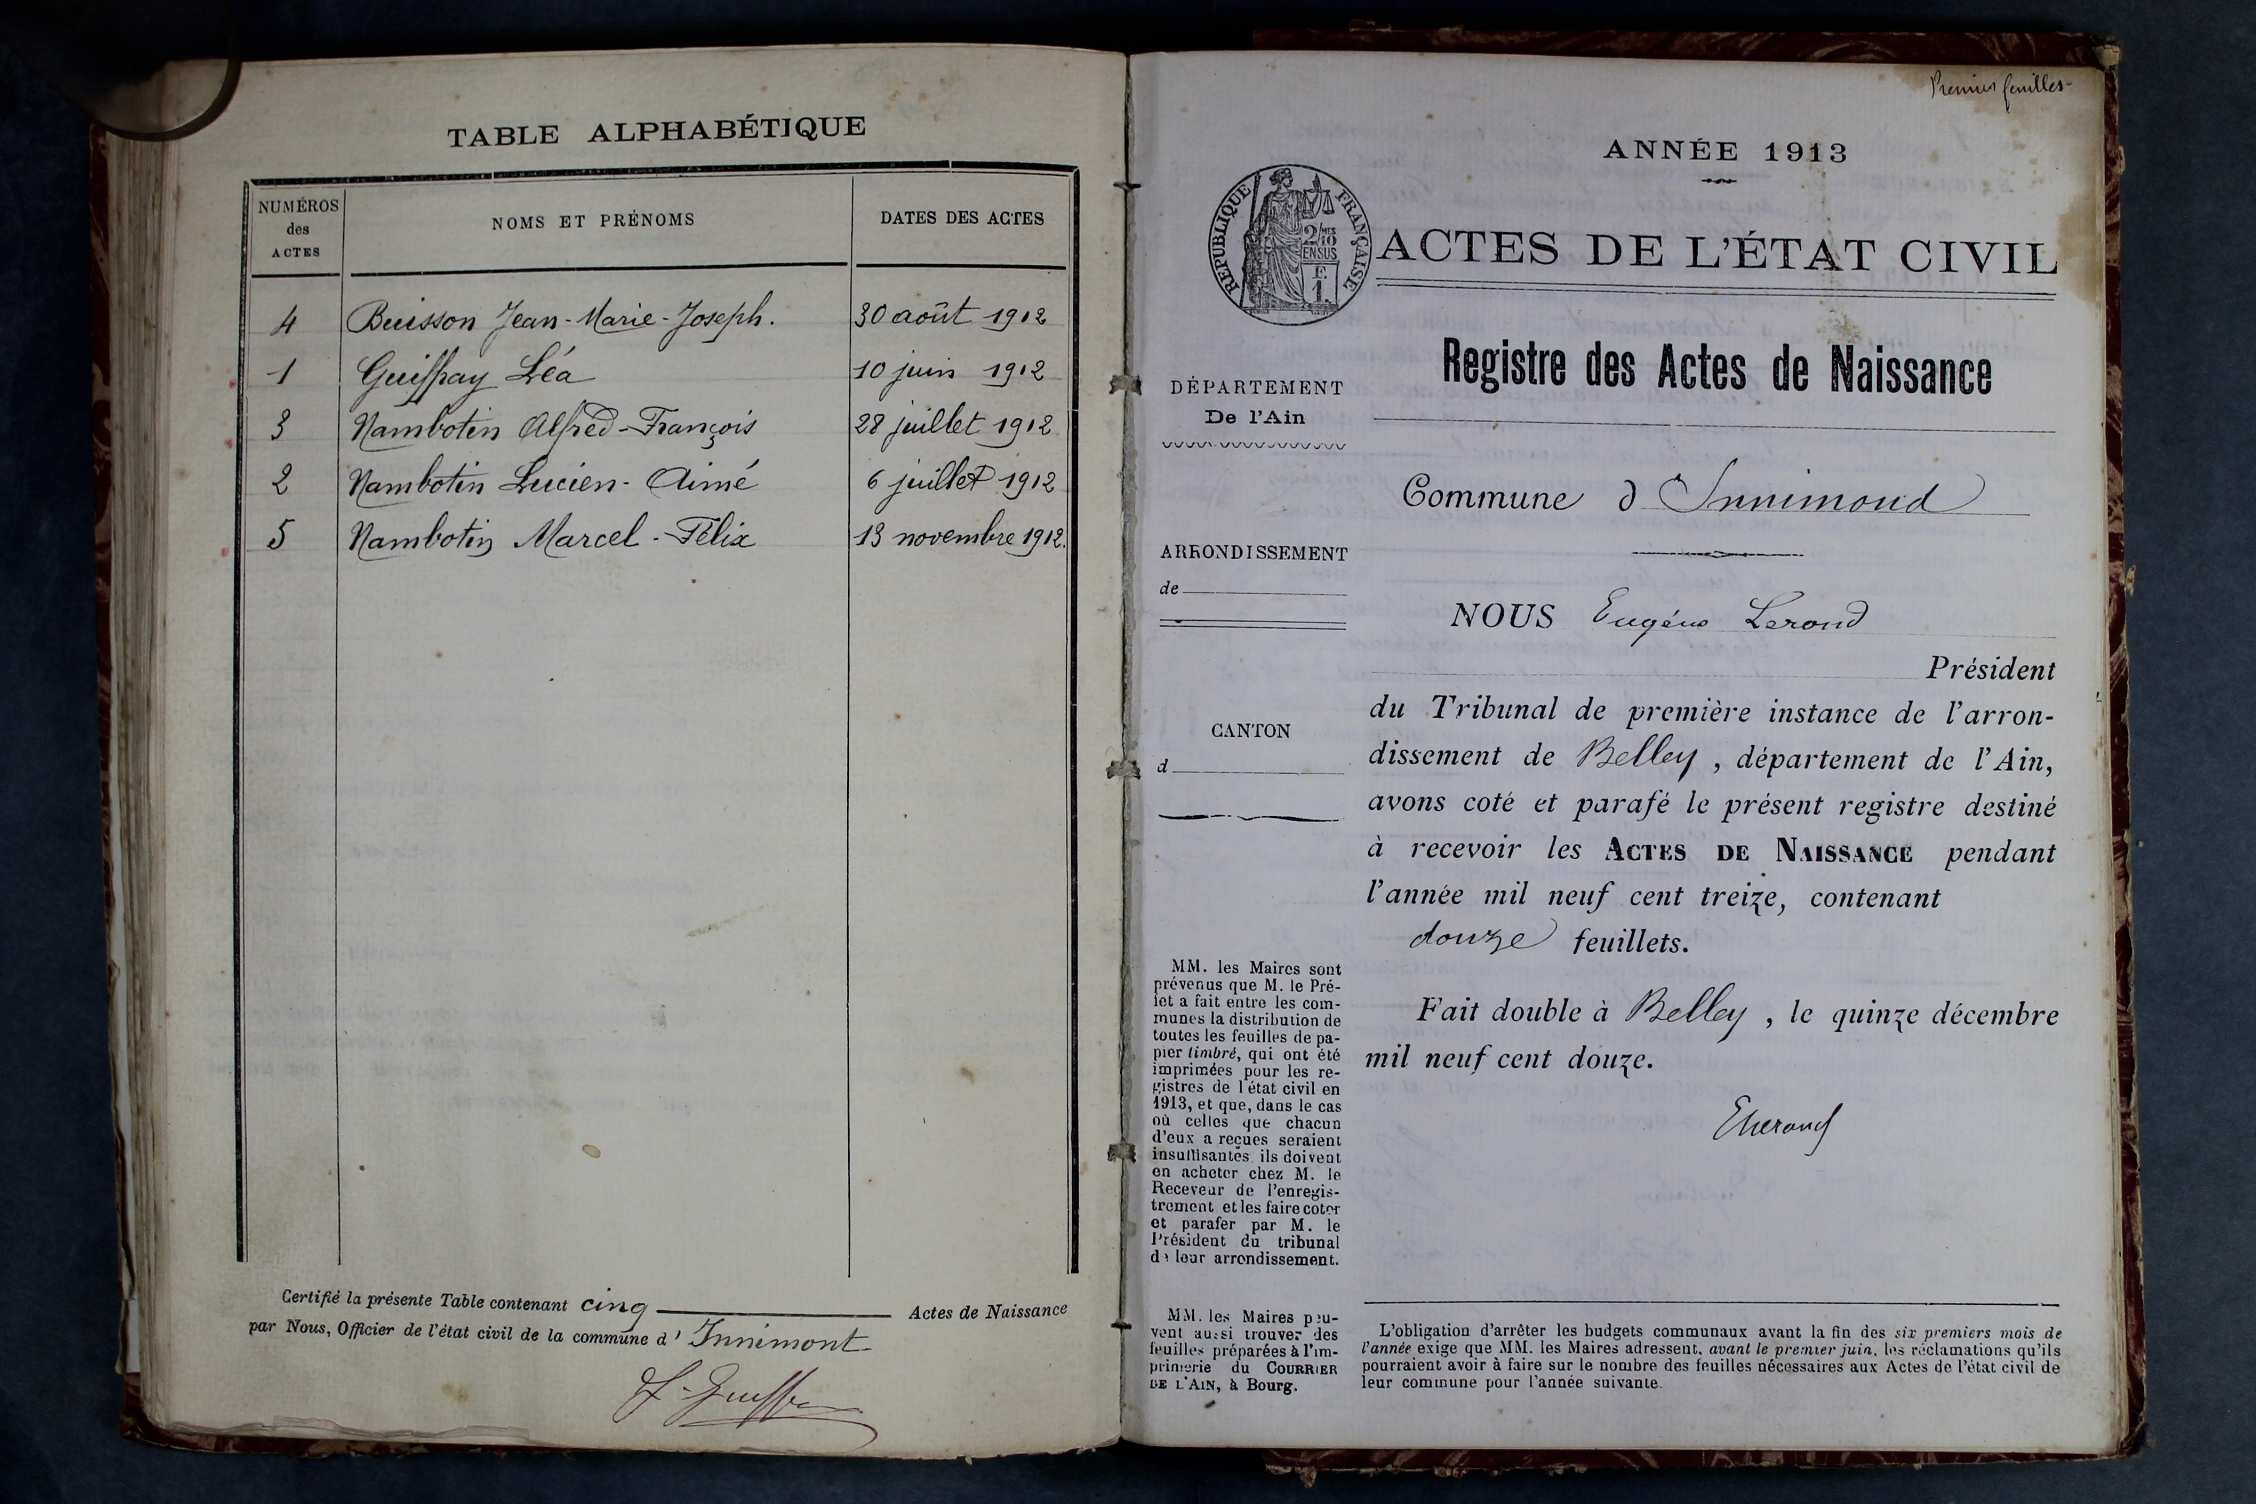 TABLE ALPHABÉTIQUE
NUMÉROS des ACTES NOMS ET PRÉNOMS DATES DES ACTES
4 Buisson Jean-Marie-Joseph. 30 août 1912
1 Guiffray Léa 10 juin 1912
3 Nambotin Alfred-François 28 juillet 1912
2 Nambotin Lucien-Aimé 6 juillet 1912
5 Nambotin Marcel-Félix 13 novembre 1912.
Certifié la présente Table contenant cinq Actes de Naissance
par Nous, Officier de l'état civil de la commune d' Innimont
Premier feuillet
ANNÉE 1913
RÉPUBLIQUE FRANÇAISE
2/10MES
EN SUS
F.
1.
ACTES DE L'ÉTAT CIVIL
DÉPARTEMENT
De l'Ain
ARRONDISSEMENT
de
CANTON
d
MM. les Maires sont
prévenus que M. le Pré-
fet a fait entre les com-
munes la distribution de
toutes les feuilles de pa-
pier timbré, qui ont été
imprimées pour les re-
gistres de l'état civil en
1913, et que, dans le cas
où celles que chacun
d'eux a reçues seraient
insuffisantes, ils doivent
en acheter chez M. le
Receveur de l'enregis-
trement et les faire coter
et parafer par M. le
Président du tribunal
de leur arrondissement.
MM. les Maires peu-
vent aussi trouver des
feuilles préparées à l'im-
primerie du COURRIER
DE L'AIN, à Bourg.
Registre des Actes de Naissance
Commune d'Innimond
NOUS Eugène Lerond
Président
du Tribunal de première instance de l'arron-
dissement de Belley, département de l'Ain,
avons coté et parafé le présent registre destiné
à recevoir les ACTES DE NAISSANCE pendant
l'année mil neuf cent treize, contenant
douze feuillets.
Fait double à Belley, le quinze décembre
mil neuf cent douze.
ELerond
L'obligation d'arrêter les budgets communaux avant la fin des six premiers mois de
l'année exige que MM. les Maires adressent, avant le premier juin, les réclamations qu'ils
pourraient avoir à faire sur le nombre des feuilles nécessaires aux Actes de l'état civil de
leur commune pour l'année suivante.